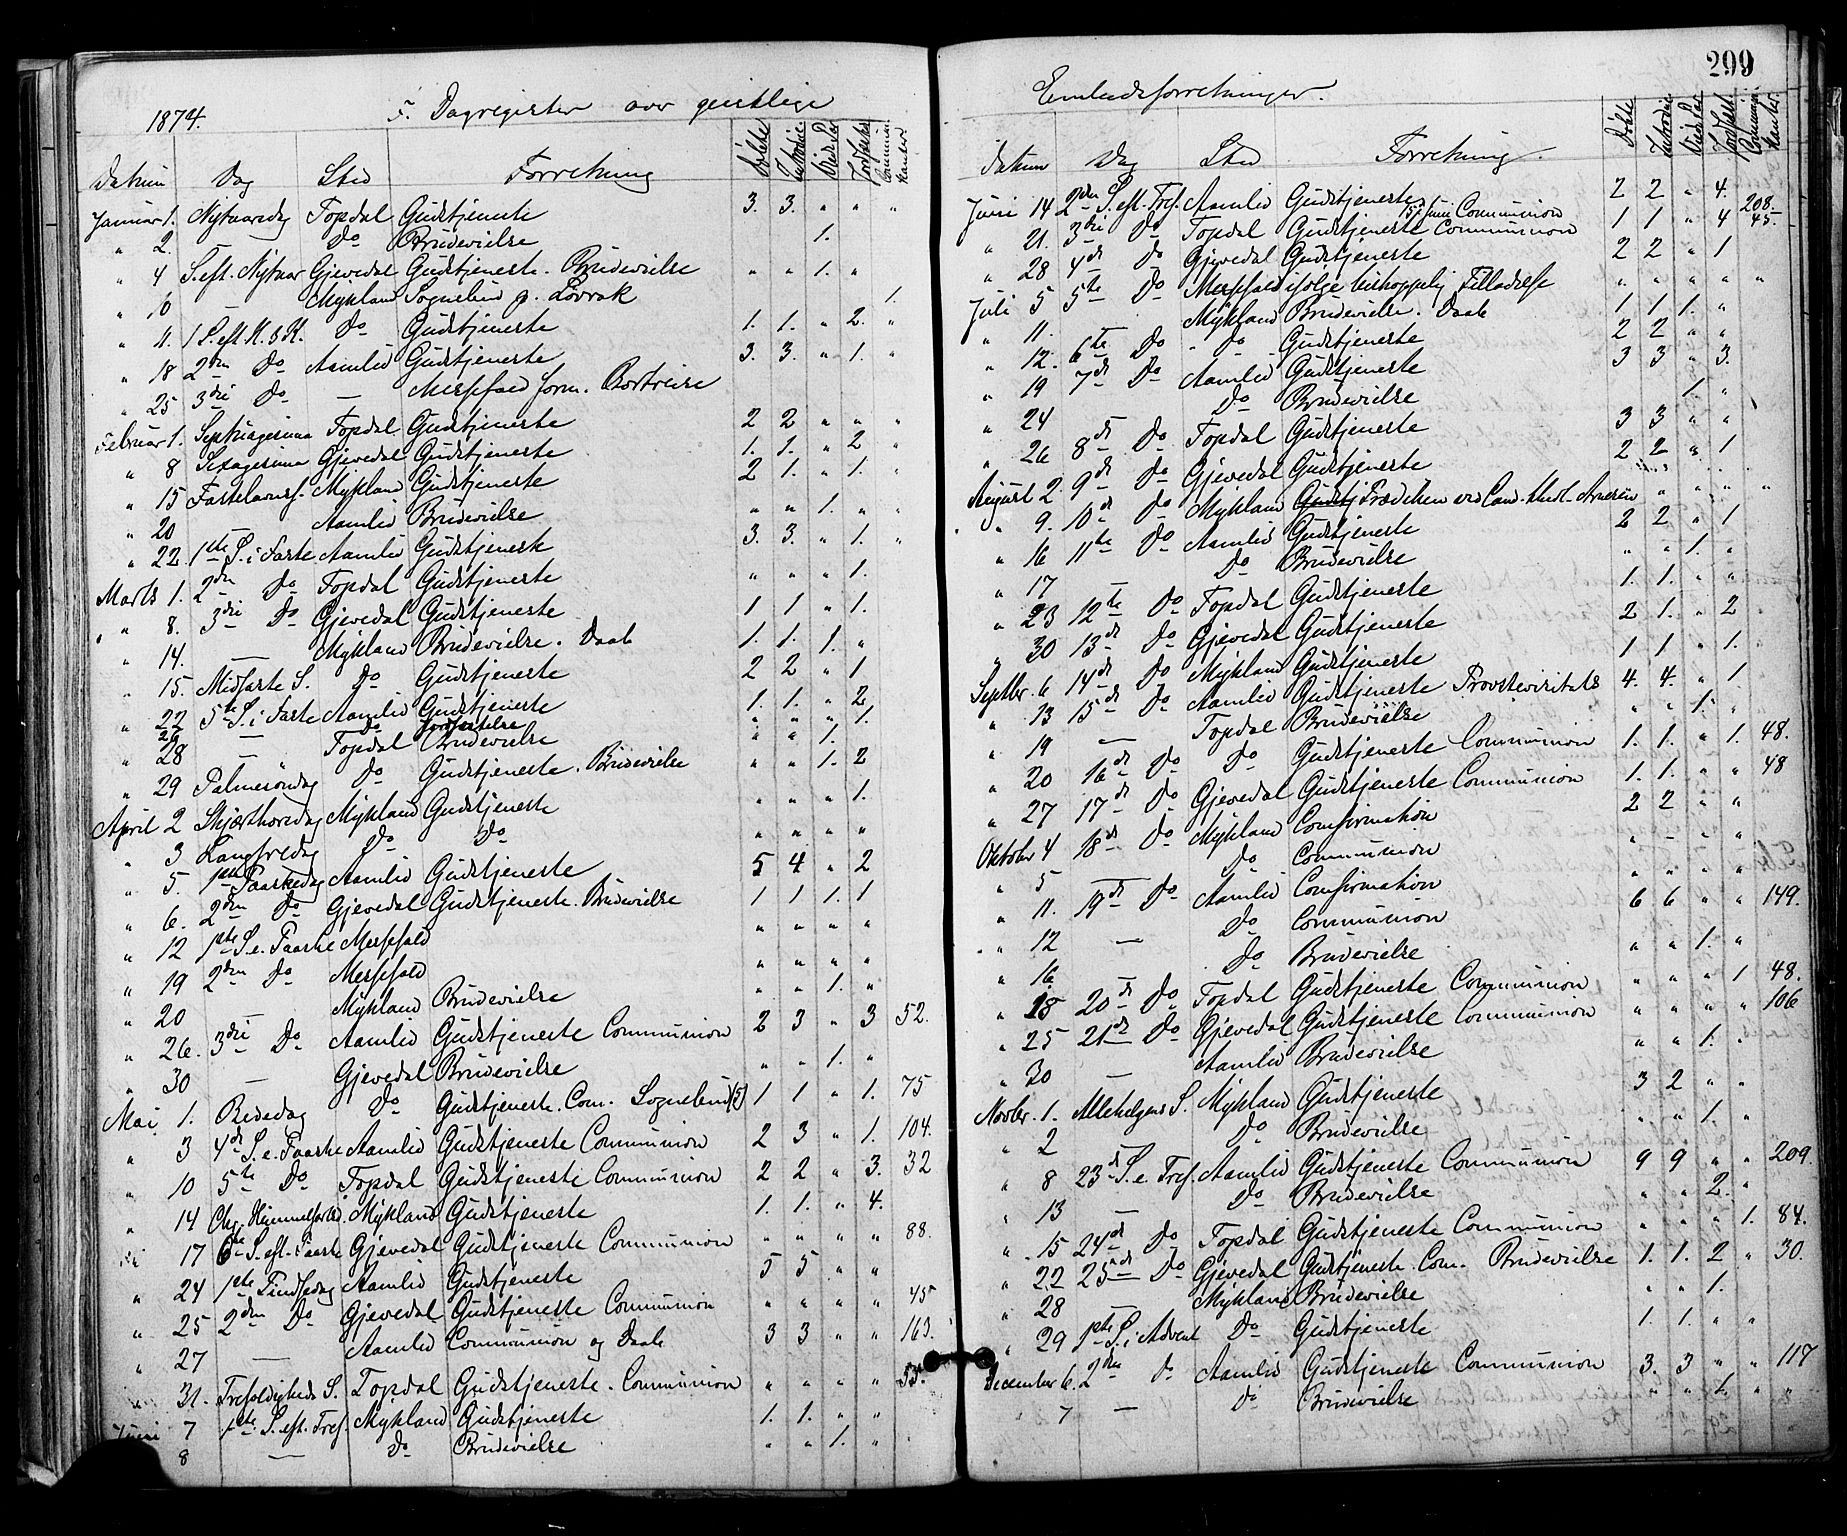 299
1874. 5. Dagregister over geistlige
Datum Dag Sted Forretning Döbte Introdu. Vied. Par Jordfæstet Communikanter
Januar 1. Nytaarsdag Topdal Gudstjeneste 3. 3. " " "
" 2. Do Brudevielse 1.
" 4 S. eft. Nytaar Gjevedal Gudstjeneste. Brudevielse " " 1. "
" 10 — Mykland Sognebud p. Lövrak 1.
" 11. 1 S. eft. H. 3 K. Do Gudstjeneste 1. 1. " 2. "
" 18 2den Do Aamlid Gudstjeneste 3. 3. " 1. "
" 25 3die Do — Messefald Form. Bortreise
Februar 1. Septuagesima Topdal Gudstjeneste 2 2 " " "
" 8 Sexagesima Gjevedal Gudstjeneste 1. 1. " 2 "
" 15 Fastelavnss. Mykland Gudstjeneste 2 1. " 1. "
" 20 Aamlid Brudevielse " " 1. " "
" 22 1ste S. i Faste Aamlid Gudstjeneste 3. 3. " 1. "
Marts 1. 2den Do Topdal Gudstjeneste " " " 1.
" 8. 3die Do Gjevedal Gudstjeneste 1 1 " 1.
" 14. — Mykland Brudevielse. Daab 1. 1. 1. "
" 15. Midfaste S. Do Gudstjeneste 2 2 " 1
" 22 5te S. i Faste Aamlid Gudstjeneste 1. 1. " 2
" 24 — Do Jordfæstelse " " " 1.
" 28 Topdal Brudevielse " " 1.
" 29 Palmesöndag Do Gudstjeneste. Brudevielse " " 1. 2
April 2 Skjærthorsdag Mykland Gudstjeneste " " " 1.
" 3 Langfredag Do Do " " " "
" 5. 1ste Paaskedag Aamlid Gudstjeneste 5 4 " 2
" 6. 2den Do Gjevedal Gudstjeneste. Brudevielse 1 1 1. 1
" 12 1ste S. e. Paaske Messefald " " " "
" 19 2den Do Messefald " " " "
" 20 — Mykland Brudevielse " " 1. "
" 26. 3die Do Aamlid Gudstjeneste Communion 2 3 " 3 52.
" 30 — Gjevedal Brudevielse " " 1. "
Mai 1. Bededag Do Gudstjeneste. Com. Sognebud (5) 1 1 " 1. 75
" 3 4de S. e. Paaske Aamlid Gudstjeneste Communion 2 3 " 1. 104.
" 10 5te Do Topdal Gudstjeneste Communion 2 2 " 3. 32
" 14 Chr. Himmelfartsd. Mykland Gudstjeneste 1. 1. " 4.
" 17 6te S. eft. Paaske Gjevedal Gudstjeneste Communion " " " " 88.
" 24 1ste Pindsedag Aamlid Gudstjeneste 5 5 " "
" 25 2den Do Gjevedal Gudstjeneste Communion " " " " 45
" 27 — Aamlid Communion og Daab 3 3 " " 163.
" 31. Trefoldigheds S. Topdal Gudstjeneste. Communion " " " " 55.
Juni 7 1ste S. eft. Tref. Mykland Gudstjeneste 1. 1. " "
8 — Do Brudevielse " " 1. "
Embedsforretninger.
Datum Dag Sted Forretning. Döbte Introdu. Vied. Par Jordfæst. Communikanter
Juni 14 2den S. eft. Tref. Aamlid Gudstjeneste 15 Juni Communion 2 2 " 4. 208.
" 21. 3die Do Topdal Gudstjeneste Communion 1 1 " 4 45.
" 28 4de Do Gjevedal Gudstjeneste 2 2 " 1
Juli 5 5te Do Messefald ifölge biskoppelig Tilladelse " " " " "
" 11. Mykland Brudevielse. Daab 1. 1. 1. "
" 12. 6te Do Do Gudstjeneste 2 2 " "
" 19 7de Do Aamlid Gudstjeneste 3 3 " 3.
" 24 Do Brudevielse 1. "
" 26 8de Do Topdal Gudstjeneste 3 3 " "
August 2. 9de Do Gjevedal Gudstjeneste 2 2 " 1
" 9. 10de Do Mykland Gudstj Prædiken ved Cand. theol. Arnesen " " " "
" 16 11te Do Aamlid Gudstjeneste 2 2 " 1
" 17 — Do Brudevielse " " 1. "
" 23 12te Do Topdal Gudstjeneste 1. 1. " "
" 30 13de Do Gjevedal Gudstjeneste 2 1. " 2
Septbr. 6 14de Do Mykland Gudstjeneste 1 1 " 1.
" 13 15de Do Aamlid Gudstjeneste Provstevisitats 4. 4. " 1
" 19 — Topdal Brudevielse " " 1. "
" 20 16de Do Do Gudstjeneste Communion 1. 1. " 1. 48.
" 27 17de Do Gjevedal Gudstjeneste Communion 1. 1. " " 48
Oktober 4 18de Do Mykland Confirmation 2 2 " "
" 5 Do Communion " " " "
" 11. 19de Do Aamlid Confirmation " " " "
" 12 — Do Communion 6 6 " " 149.
" 16 — Do Brudevielse " " 1. "
" 18 20de Do Topdal Gudstjeneste Communion " " " 1 48.
" 25 21de Do Gjevedal Gudstjeneste Communion " " " " 106
" 30 — Aamlid Brudevielse " " 1. "
Novbr. 1. Allehelgens S. Mykland Gudstjeneste 3 2 " "
" 2 Do Brudevielse " " 1. "
" 8 23de S. e. Tref. Aamlid Gudstjeneste Communion 9 9 " " 209.
" 13 — Do Brudevielse " " 2. "
" 15 24de Do Topdal Gudstjeneste Communion " " " 1. 84.
" 22 25de Do Gjevedal Gudstjeneste. Com. Brudevielse 1. 1. 2 " 30.
" 28 — Mykland Brudevielse " " 1.
" 29 1ste S. i Advent Do Gudstjeneste 1. 1. " "
December 6. 2den Do Aamlid Gudstjeneste Communion 3. 3 " " 117
" 7 — Do Brudevielse " " 1. " "